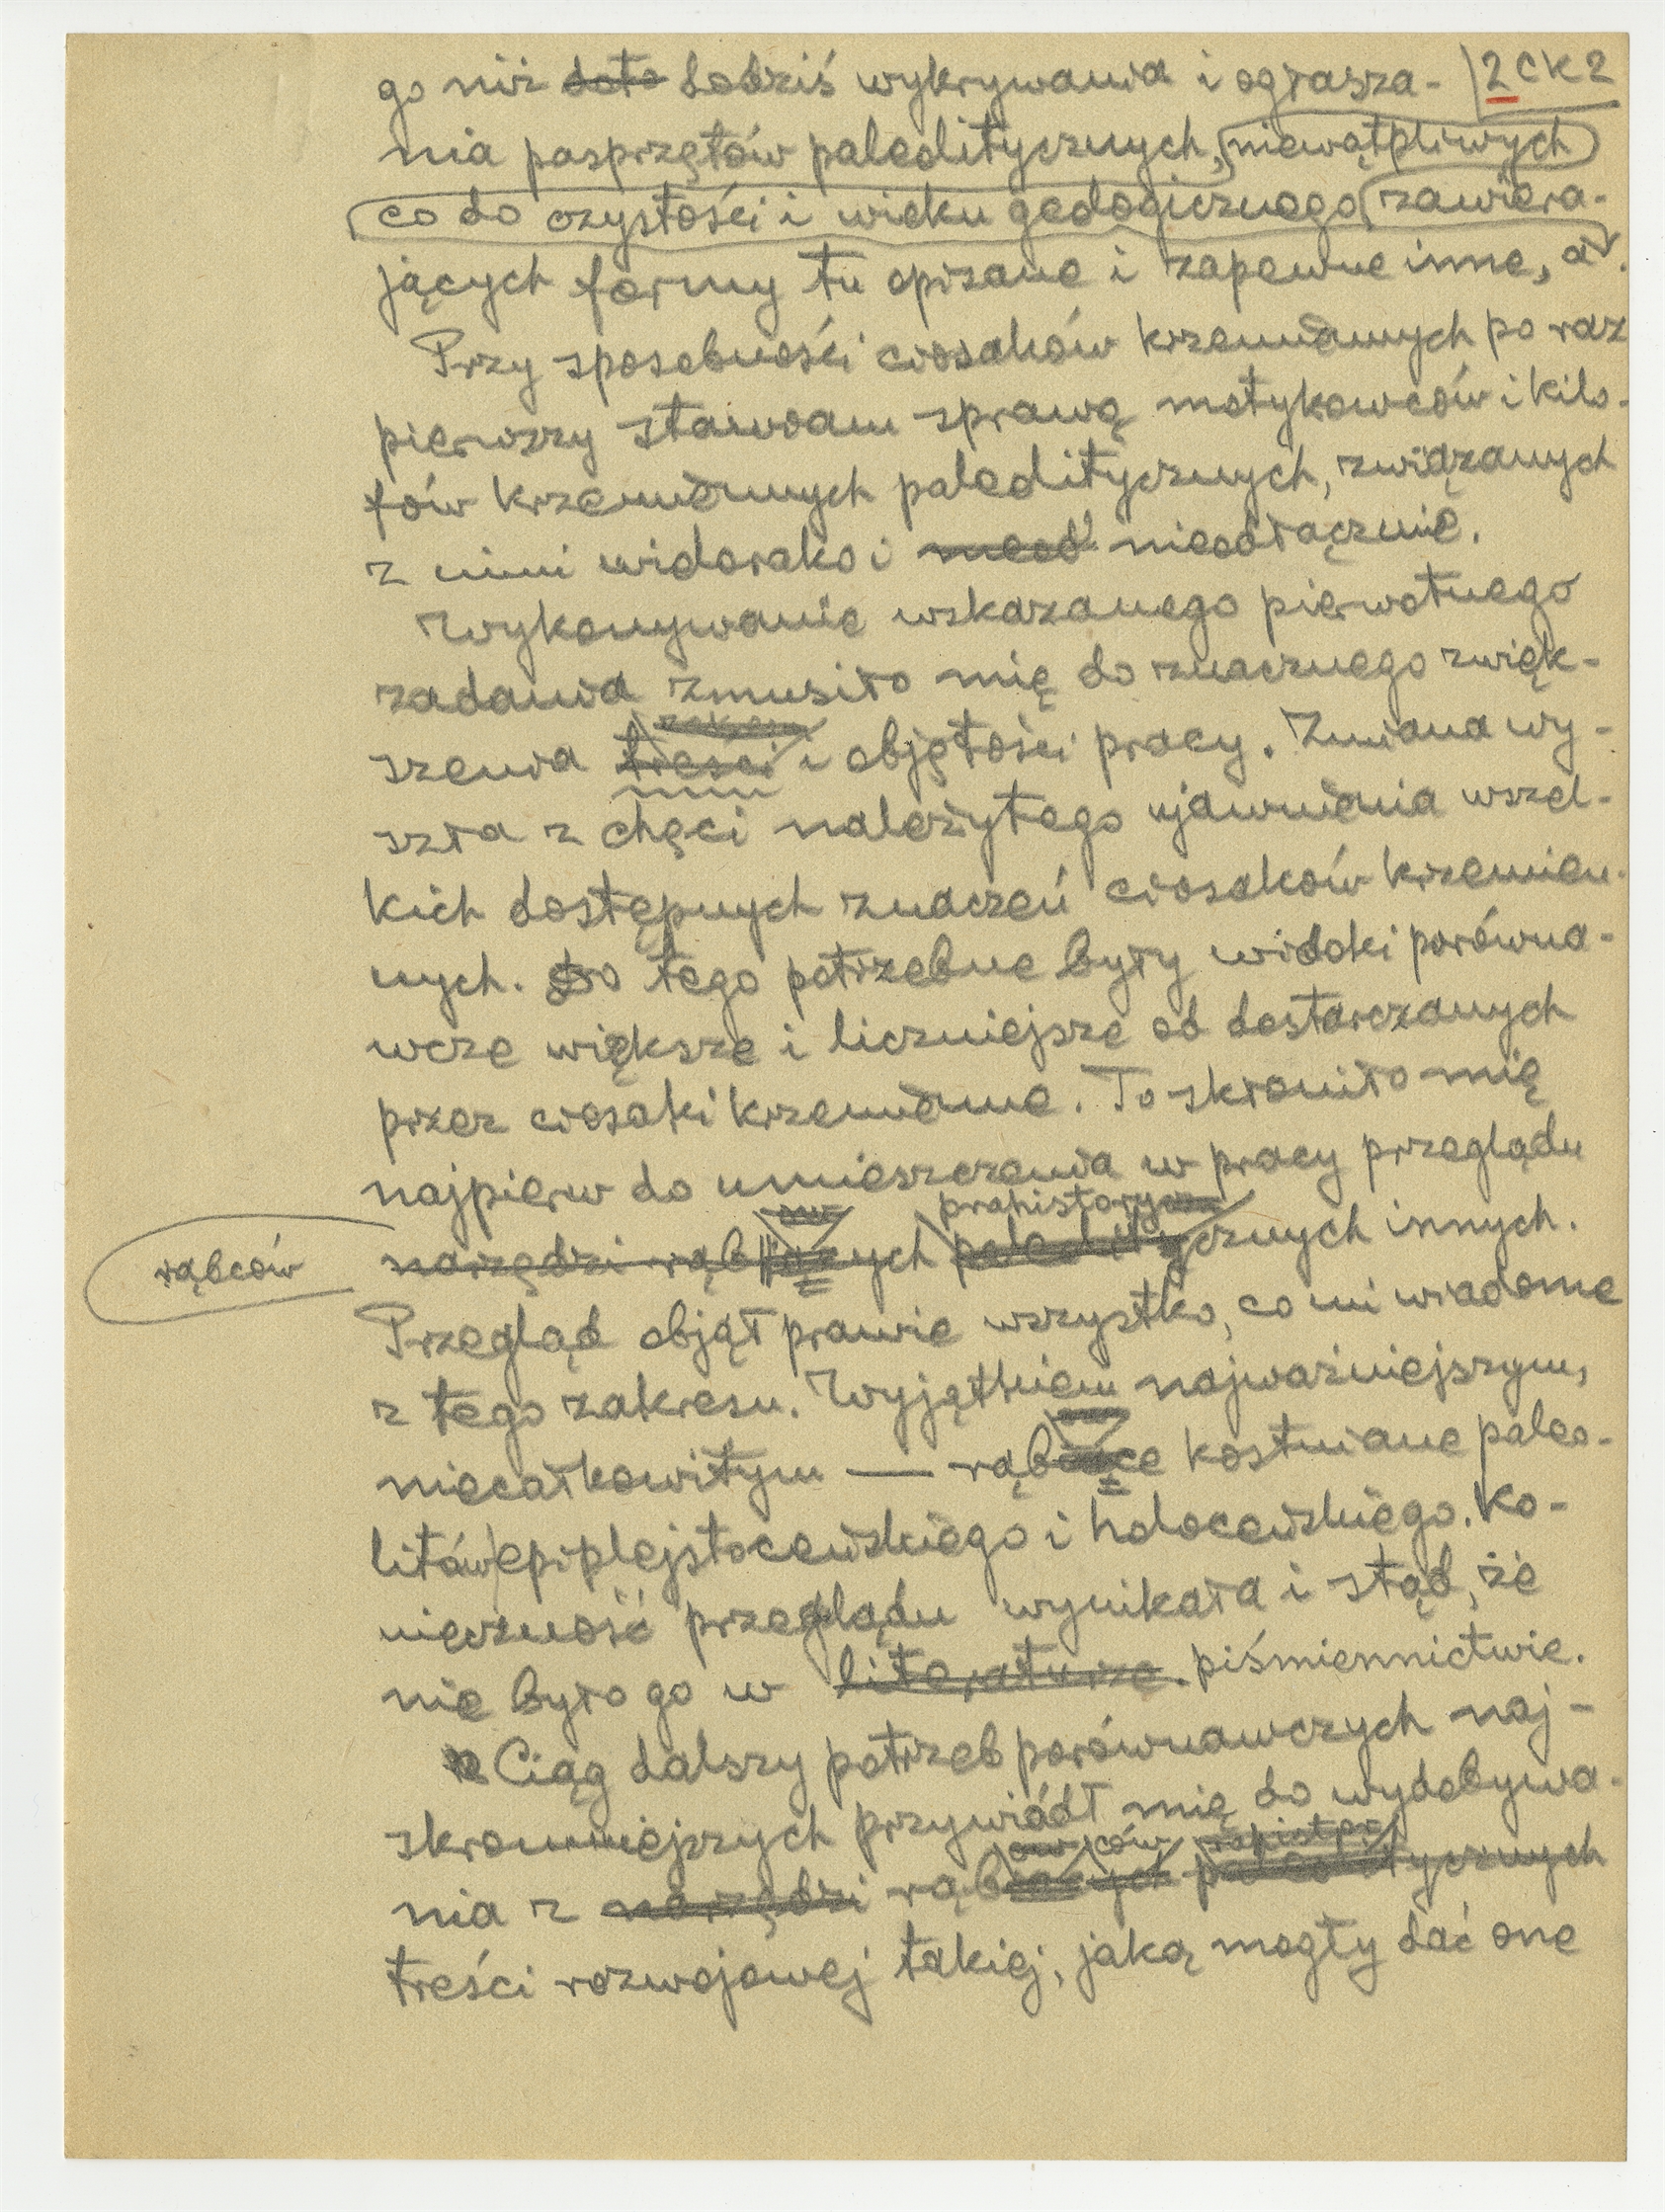 go niż doto dodziś wykrywania i ogłasza- 2CK2
nia posprzętów paleolitycznych, niewątpliwych
co do czystości i wieku geologicznego zawiera-
jących formy tu opisane i zapewne inne,
Przy sposobności ciosaków krzemiennych po raz
pierwszy stawiam sprawę motykowców i kilo-
fów krzemiennych paleolitycznych, związanych
z nimi wielorako i nieodłącznie.
Wykonywanie wskazanego pierwotnego
zadania zmusiło mię do znacznego zwięk-
szenia treści i objętości pracy. Zmiana wy-
szła z chęci należytego ujawnienia wszel-
kich dostępnych znaczeń ciosaków krzemien-
nych. Do tego potrzebne były widoki porówna-
wcze większe i liczniejsze od dostarczanych
przez ciosaki krzemienne. To skłoniło mię
najpierw do umieszczenia w pracy przeglądu
prahistorycz
rąbców narzędzi rąbiących paleolitycznych innych.
Przegląd objął prawie wszystko, co mi wiadome
z tego zakresu. Wyjątkiem najważniejszym,
niecałkowitym — kostniane paleo-
litów epiplejstoceńskiego i holoceńskiego. Ko-
nieczność przeglądu wynikała i stąd, że
nie było go w literaturze piśmiennictwie.
Ciąg dalszy potrzeb porównawczych naj-
skromniejszych przywiódł mię do wydobywa-
nia z narzędzi rąbiących paleolitycznych
treści rozwojowej takiej, jaką mogły dać one